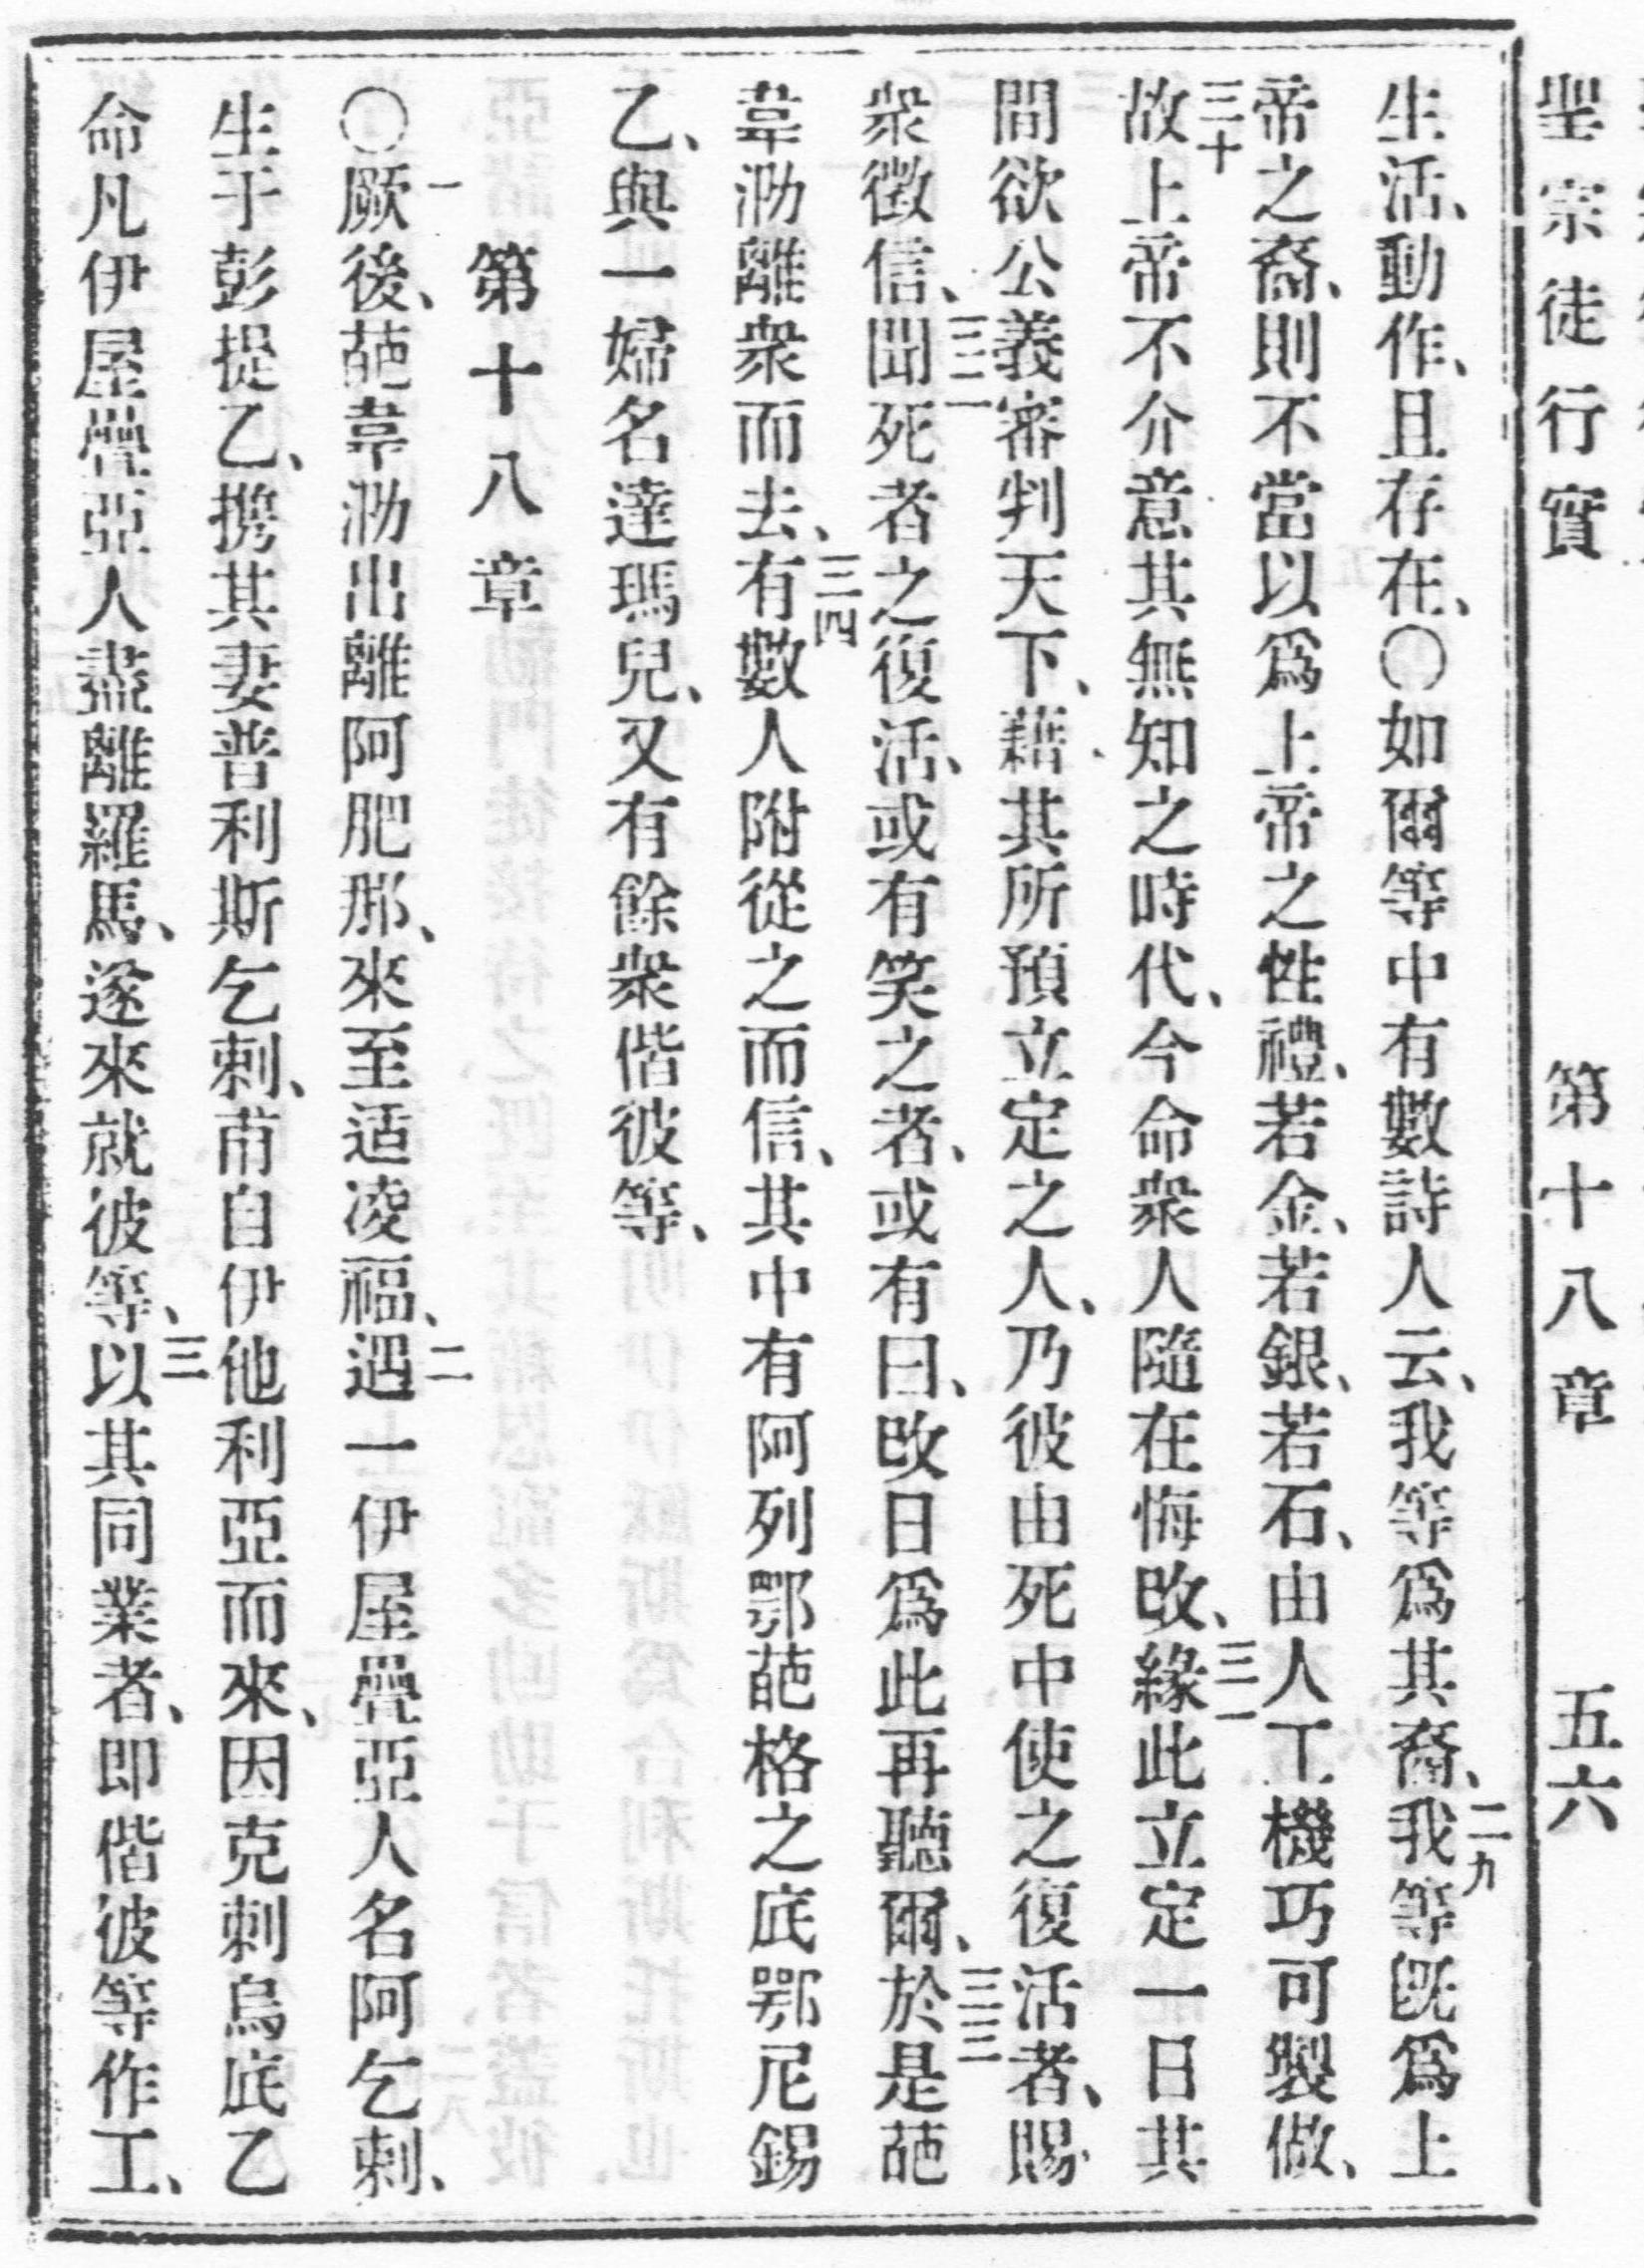 聖宗徒行實　第十八章　五六
生活、動作、且存在、〇如爾等中有數詩人云、我等爲其裔、二九我等旣爲上
帝之裔、則不當以爲上帝之性禮、若金、若銀、若石、由人工機巧可製做、
三十故上帝不介意其無知之時代、今命衆人隨在悔改、三一緣此立定一日其
間欲公義審判天下、藉其所預立定之人、乃彼由死中使之復活者、賜
衆徵信、三二聞死者之復活、或有笑之者、或有曰、改日爲此再聽爾、三三於是葩
韋泐離衆而去、三四有數人附從之而信、其中有阿列鄂葩格之底鄂尼錫
乙、與一婦名達瑪兒、又有餘衆偕彼等、
第十八章
〇一厥後、葩韋泐出離阿肥那、來至适凌福、二遇一伊屋疊亞人名阿乞剌、
生于彭挻乙、携其妻普利斯乞剌、甫自伊他利亞而來、因克剌烏底乙
命凡伊屋疊亞人盡離羅馬、遂來就彼等、三以其同業者、即偕彼等作工、